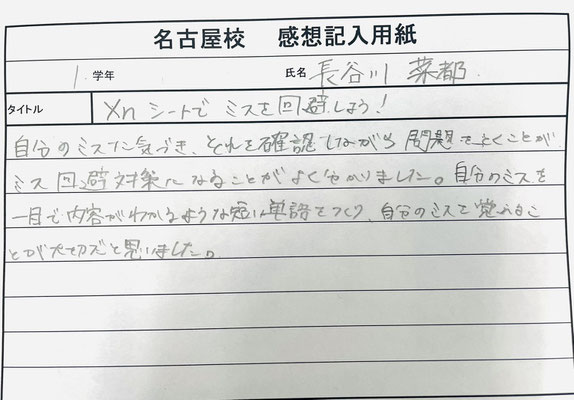 名古屋校 感想記入用紙
1 学年 氏名 長谷川 菜都
タイトル Xn シートで ミスを回避しよう!
自分のミスに気づき、それを確認しながら 問題をとくことが
ミス回避対策になることがよく分かりました。自分のミスを
一目で内容がわかるような短い単語をつくり、自分のミスを覚えるこ
とが大切だと思いました。